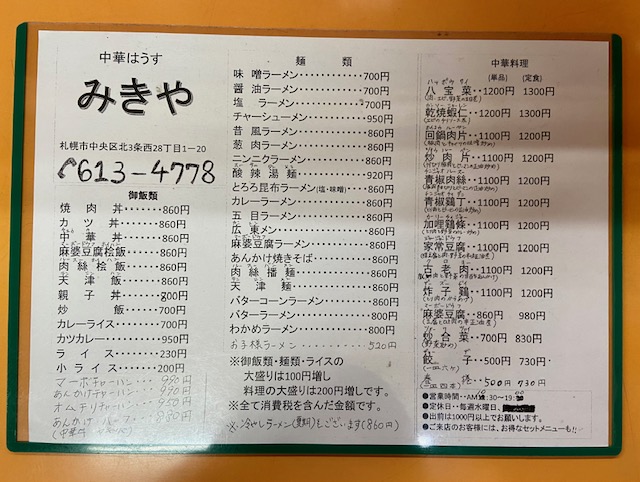 中華はうす
みきや
札幌市中央区北3条西28丁目1ー20
613-4778
御飯類
焼肉丼・・・・・・860円
カツ丼・・・・・・860円
中華丼・・・・・・860円
麻婆豆腐桧飯・・・・・860円
肉絲桧飯・・・・・・860円
天津飯・・・・・・860円
親子丼・・・・・・800円
炒飯・・・・・・700円
カレーライス・・・・・・700円
カツカレー・・・・・・950円
ライス・・・・・・230円
小ライス・・・・・・200円
マーボチャーハン
あんかけチャーハン
オムチリチャーハン
麺類
味噌ラーメン・・・・・・700円
醤油ラーメン・・・・・・700円
塩ラーメン・・・・・・700円
チャーシューメン・・・・・・950円
昔風ラーメン・・・・・・860円
葱肉ラーメン・・・・・・860円
ニンニクラーメン・・・・・・860円
酸辣湯麺・・・・・・920円
とろろ昆布ラーメン(塩・味噌)・・・860円
カレーラーメン・・・・・・860円
五目ラーメン・・・・・・860円
広東メン・・・・・・860円
麻婆豆腐ラーメン・・・・・・860円
あんかけ焼きそば・・・・・・860円
肉絲播麺・・・・・・860円
天津麺・・・・・・860円
バターコーンラーメン・・・・・・860円
バターラーメン・・・・・・800円
わかめラーメン・・・・・・800円
お子様ラーメン・・・・・・520円
※御飯類・麺類・ライスの
大盛りは100円増し
料理の大盛りは200円増しです。
※全て消費税を含んだ金額です。
※冷しラーメン(夏期)もございます(860円)
中華料理
(単品) (定食)
八宝菜・・1200円 1300円
乾焼蝦仁・・1200円 1300円
回鍋肉片・・1100円 1200円
炒肉片・・1100円 1200円
青椒肉絲・・1100円 1200円
青椒鶏丁・・1100円 1200円
加哩鶏條・・1100円 1200円
家常豆腐・・1100円 1200円
古老肉・・1100円 1200円
炸子鶏・・1100円 1200円
麻婆豆腐・・860円 980円
炒合菜・・700円 830円
餃子・・500円 730円
春捲・・500円 730円
●営業時間・・AM
●定休日・・毎週水曜日、
●出前は1000円以上でお願いします。
●ご来店のお客様には、お得なセットメニューも!!